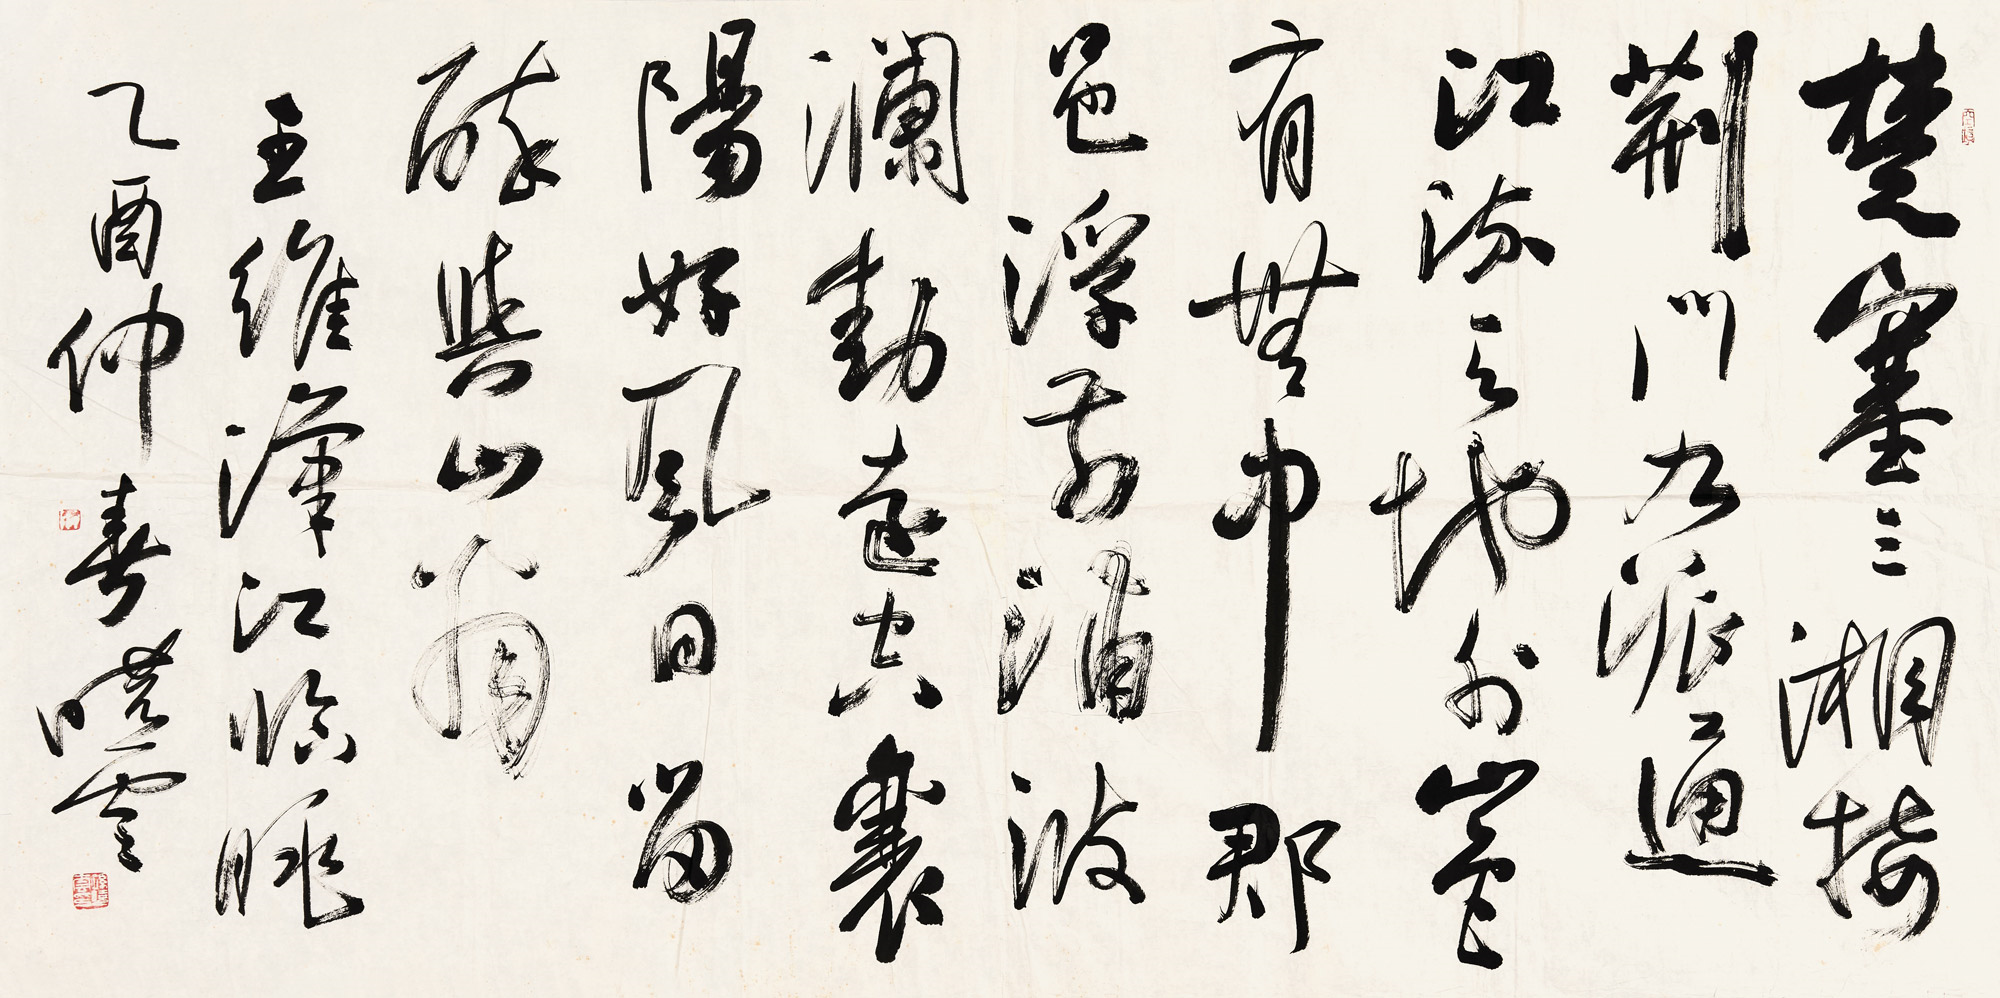 楚塞三湘接
荆門九派通
江流天地外山色
有無中郡
邑浮前浦波
瀾動遠空襄
陽好風日留
醉與山翁
王維漢江臨眺
乙酉仲春曉雲